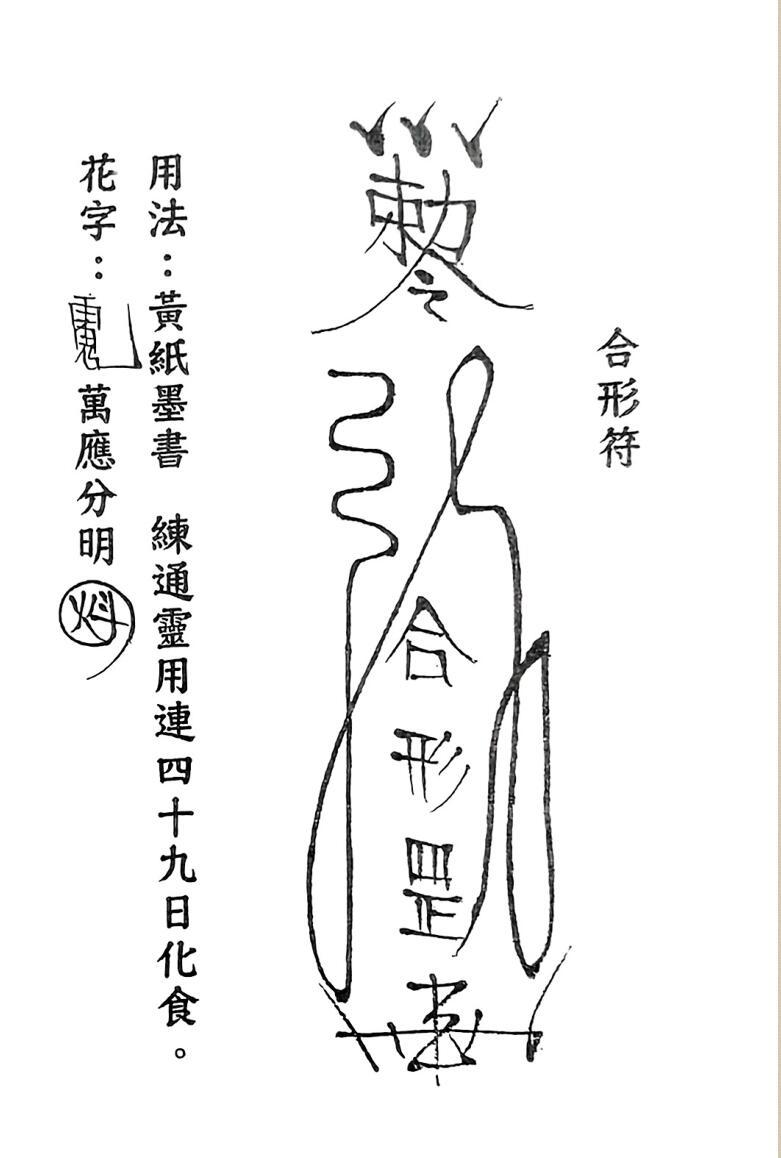 合形符
勅令
合形罡
用法：黃紙墨書　練通靈用連四十九日化食。
花字：萬應分明